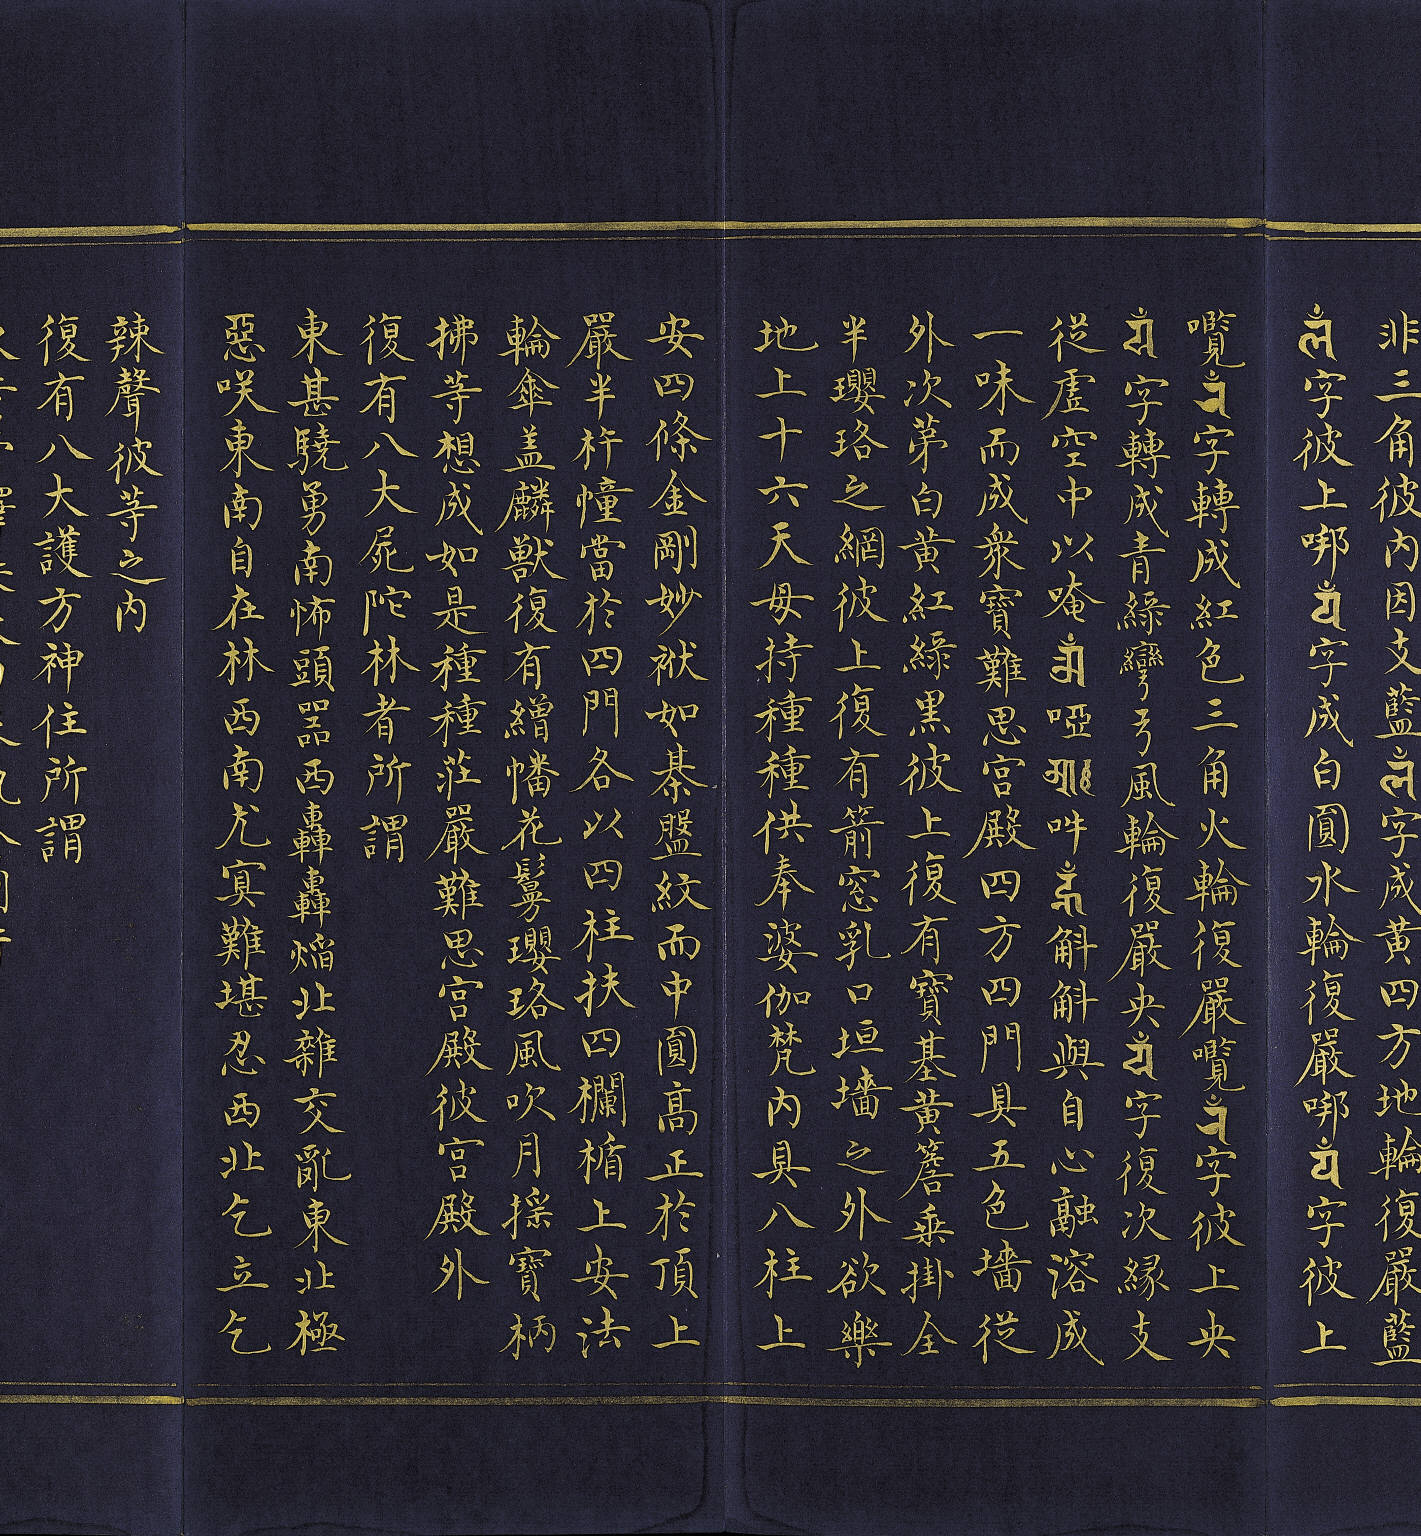 非三角彼内因支藍字成黄四方地輪復嚴藍
字彼上哪字成白圓水輪復嚴哪字彼上
囕字轉成紅色三角火輪復嚴囕字彼上央
字轉成青綠彎弓風輪復嚴央字復次緣支
從虛空中以唵啞吽斛斛與自心融溶成
一味而成衆寶難思宫殿四方四門具五色墻從
外次苐白黄紅綠黑彼上復有寶基黄簷乗掛全
半瓔珞之網彼上復有箭窓乳口垣墻之外欲樂
地上十六天母持種種供奉婆伽梵内具八柱上
安四條金剛妙栿如棊盤紋而中圓高正於頂上
嚴半杵幢當於四門各以四柱扶四欄楯上安法
輪傘盖麟獸復有繒幡花鬘瓔珞風吹月採寶柄
拂等想成如是種種莊嚴難思宫殿彼宫殿外
復有八大屍陀林者所謂
東甚驍勇南怖頭器西轟轟焰北雜交亂東北極
惡咲東南自在林西南尤㝠難堪忍西北乞立乞
辣聲彼等之内
復有八大護方神住所謂